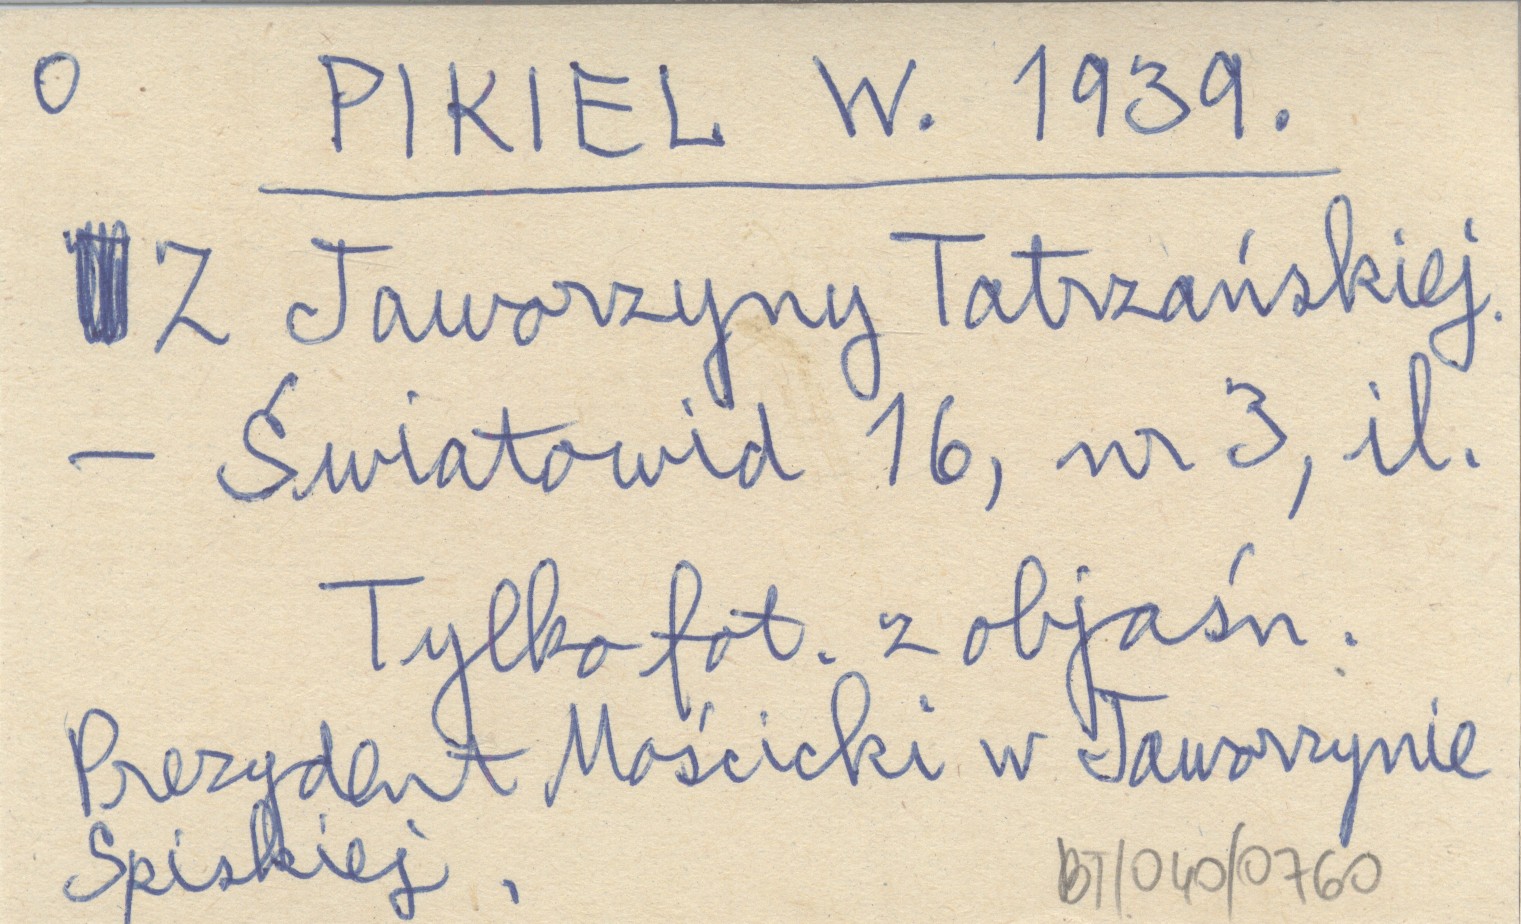 O PIKIEL W. 1939.
Z Jaworzyny Tatrzańskiej.
– Światowid 16, nr 3, il.
Tylko fot. z objaśn.
Prezydent Mościcki w Jaworzynie
Spiskiej.
BT/040/0760